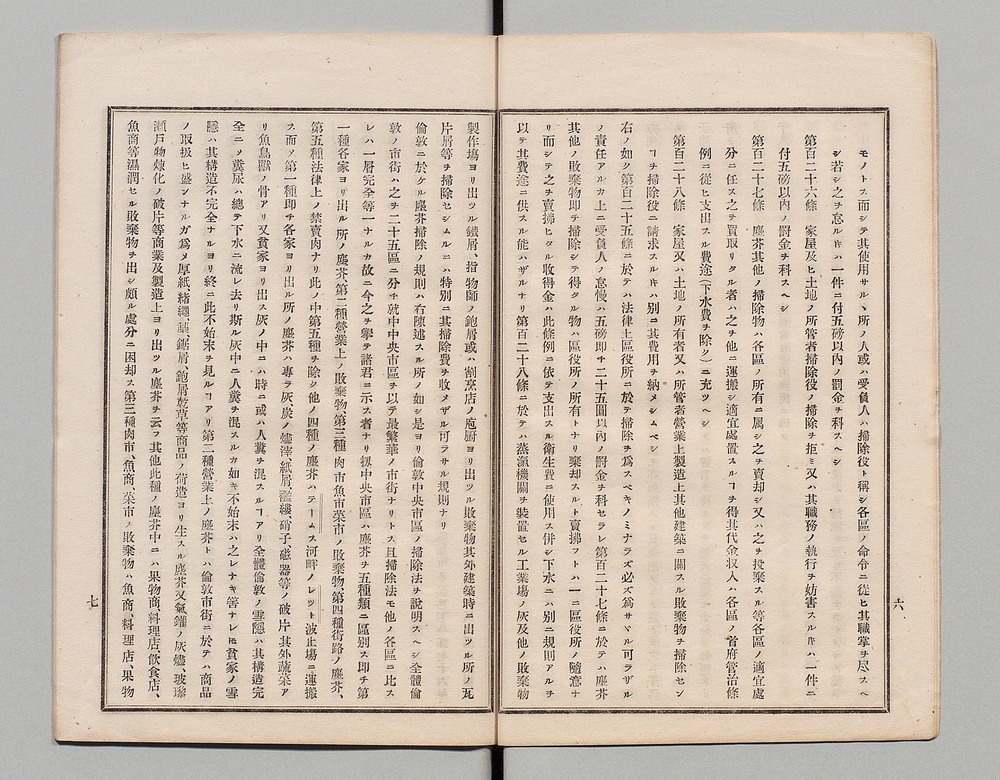 モノトス而シテ其使用サルヽ所ノ人或ハ受負人ハ掃除役ト稱シ各區ノ命令ニ從ヒ其職掌ヲ尽スヘ
シ若シ之ヲ怠ル𪜈ハ一件ニ付五磅以内ノ罰金ヲ科スヘシ
第百二十六條 家屋及ヒ土地ノ所管者掃除役ノ掃除ヲ拒ミ又ハ其職務ノ執行ヲ妨害スル𪜈ハ一件ニ
付五磅以内ノ罰金ヲ科スヘシ
第百二十七條 塵芥其他ノ掃除物ハ各區ノ所有ニ属シ之ヲ賣却シ又ハ之ヲ投棄スル等各區ノ適宜處
分ニ任ス之ヲ買取リタル者ハ之ヲ他ニ運搬シ適宜處置スルヿヲ得其代金収入ハ各區ノ首府管治條
例ニ從ヒ支出スル費途(下水費ヲ除ク)ニ充ツヘシ
第百二十八條 家屋又ハ土地ノ所有者又ハ所管者營業上製造上其他建築ニ關スル敗棄物ヲ掃除セン
ヿヲ掃除役ニ請求スル𪜈ハ別ニ其費用ヲ納メシムベシ
右ノ如ク第百二十五條ニ於テハ法律上區役所ニ於テ掃除ヲ爲スベキノミナラズ必ズ爲サヾル可ラザル
ノ責任アルカ上ニ受負人ノ怠慢ハ五磅即チ二十五圓以内ノ罰金ヲ科セラレ第百二十七條ニ於テハ塵芥
其他ノ敗棄物即チ掃除シテ得タル物ハ區役所ノ所有トナリ棄却スルト賣拂フトハ一ニ區役所ノ隨意ナ
リ而シテ之ヲ賣拂ヒタル収得金ハ此條例ニ依テ支出スル衛生費ニ使用ス併シ下水ニハ別ニ規則アルヲ
以テ其費途ニ供スル能ハザルナリ第百二十八條ニ於テハ蒸滊機關ヲ裝置セル工業場ノ灰及他ノ敗棄物
六
製作塲ヨリ出ツル鐵屑、指物師ノ鉋屑或ハ割烹店ノ庖厨ヨリ出ツル敗棄物其外建築時ニ出ツル所ノ瓦
片屑等ヲ掃除セシムルニハ特別ニ其掃除費ヲ收メザル可ラサル規則ナリ
倫敦ニ於ケル塵芥掃除ノ規則ハ右陳述スル所ノ如シ是ヨリ倫敦中央市區ノ掃除法ヲ説明スヘシ全體倫
敦ノ市街ハ之ヲ二十五區ニ分チ就中中央市區ヲ以テ最繁華ノ市街ナリトス且掃除法モ他ノ各區ニ比ス
レハ一層完全等一ナルカ故ニ今之ヲ擧テ諸君ニ示ス者ナリ扨中央市區ハ塵芥ヲ五種類ニ區別ス即チ第
一種各家ヨリ出ル所ノ塵芥、第二種營業上ノ敗棄物第三種 肉市魚市菜市ノ敗棄物、第四種街路ノ塵芥、
第五種法律上ノ禁賣肉ナリ此ノ中第五種ヲ除ク他ノ四種ノ塵芥ハテームス河畔ノレツト波止場ニ運搬
ス而ソ第一種即チ各家ヨリ出ル所ノ塵芥ハ專ラ灰炭ノ燼滓紙屑、襤褸、硝子磁器等ノ破片其外蔬菜ア
リ魚鳥獸ノ骨アリ又貧家ヨリ出ス灰ノ中ニハ時ニ或ハ人糞ヲ混スルヿアリ全體倫敦ノ雪隱ハ其構造完
全ニソ糞尿ハ總テ下水ニ流レ去リ斯ル灰中ニ人糞ヲ混スルカ如キ不始末ハ之レナキ筈ナレ𪜈貧家ノ雪
隱ハ其構造不完全ナルヨリ終ニ此不始末ヲ見ルヿアリ第二種營業上ノ塵芥トハ倫敦市街ニ於テハ商品
ノ取扱ヒ盛シナルガ爲メ厚紙、緒繩、藁、鋸屑、鉋屑乾草等商品ノ荷造ヨリ生スル塵芥又氣鑵ノ灰燼、玻瓈
瀨戸物煉化ノ破片等商業及製造上ヨリ出ツル塵芥ヲ云フ其他此種ノ塵芥中ニハ果物商、料理店、飲食店、
魚商等濕潤セル敗棄物ヲ出シ頗ル處分ニ困却ス第三種肉市、魚商、菜市ノ敗棄物ハ魚商、料理店、果物
七